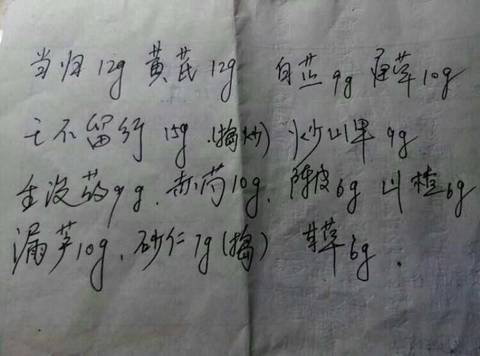 当归12g 黄芪12g 白芷9g 通草10g
王不留行 15g (捣炒) 炒山甲 9g
生没药9g. 赤芍10g. 陈皮6g 山楂6g
漏芦10g、砂仁7g(捣) 甘草6g.